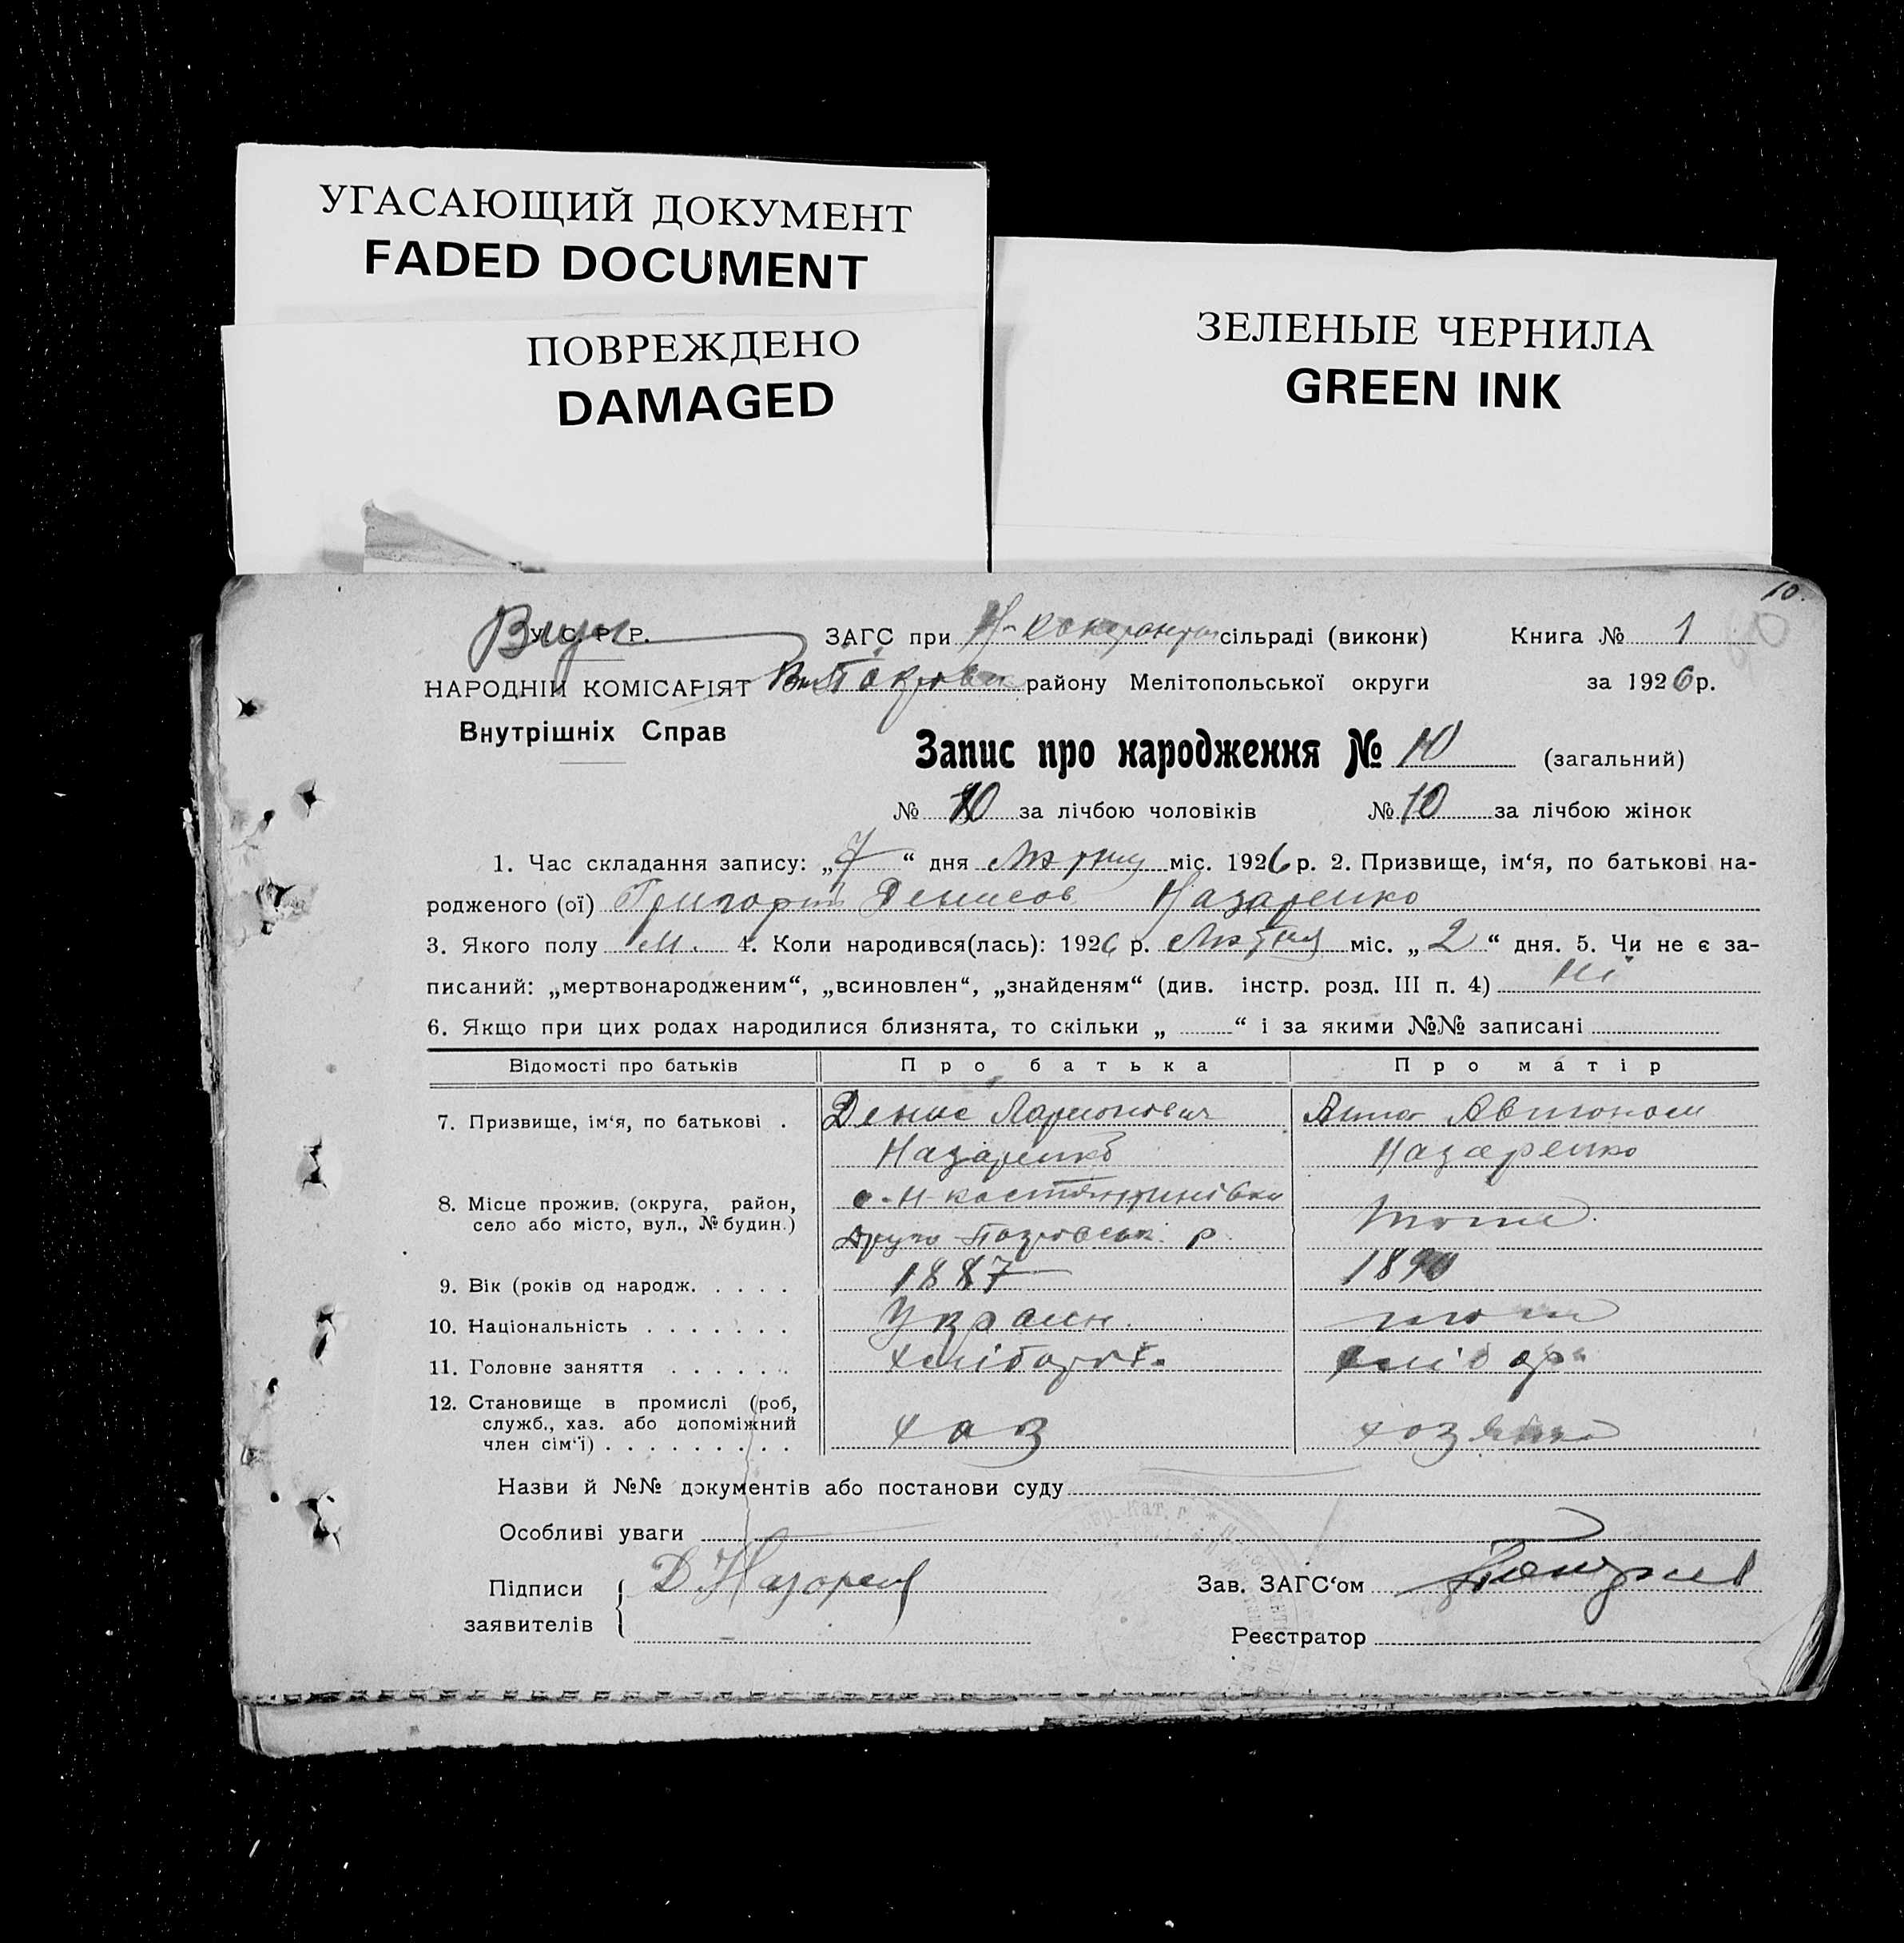 УГАСАЮЩИЙ ДОКУМЕНТ
FADED DOCUMENT
ПОВРЕЖДЕНО
DAMAGED
ЗЕЛЕНЫЕ ЧЕРНИЛА
GREEN INK
10.
У. С. Р. Р.
ЗАГС при сільраді (виконк) Книга № 1
НАРОДНІЙ КОМІСАРІЯТ району Мелітопольської округи за 1926 р.
Внутрішніх Справ
Запис про народження № 10 (загальний)
№ 10 за лічбою чоловіків № 10 за лічбою жінок
1. Час складання запису: „7“ дня міс. 1926 р. 2. Призвище, ім‘я, по батькові на-
родженого (ої) Григорій Денисов Назаренко
3. Якого полу м. 4. Коли народився(лась): 1926 р. міс. „2“ дня. 5. Чи не є за-
писаний: „мертвонародженим“, „всиновлен“, „знайденям“ (див. інстр. розд. III п. 4) Ні
6. Якщо при цих родах народилися близнята, то скільки „ “ і за якими №№ записані
Відомості про батьків Про батька Про матір
7. Призвище, ім‘я, по батькові . Денис Ларионович Анна Автоном
Назаренко Назаренко
8. Місце прожив. (округа, район,
село або місто, вул., № будин.)
9. Вік (років од народж. . . . . 1887 1890
10. Національність . . . . . . . Украин.
11. Головне заняття . . . . . .
12. Становище в промислі (роб,
служб., хаз. або допоміжний
член сім‘ї) . . . . . . . . . хаз
Назви й №№ документів або постанови суду
Особливі уваги
Підписи Д. Назарен Зав. ЗАГС‘ом
заявителів
Реєстратор